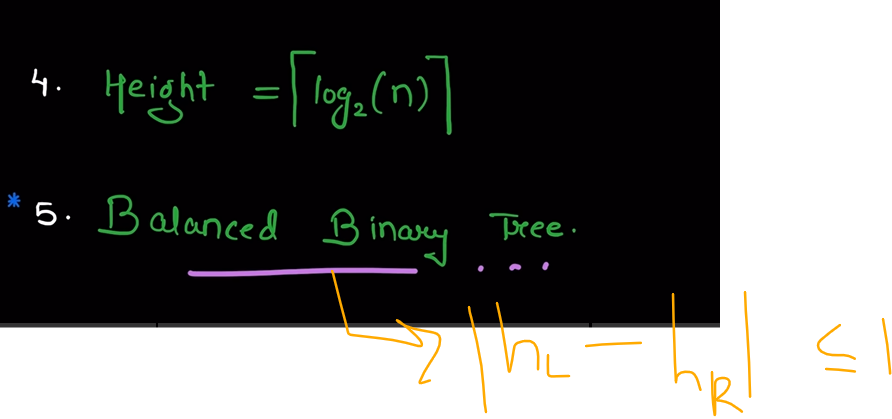 4. Height = ⌈log₂(n)⌉
* 5. Balanced Binary Tree.
|hL - hR| ≤ 1